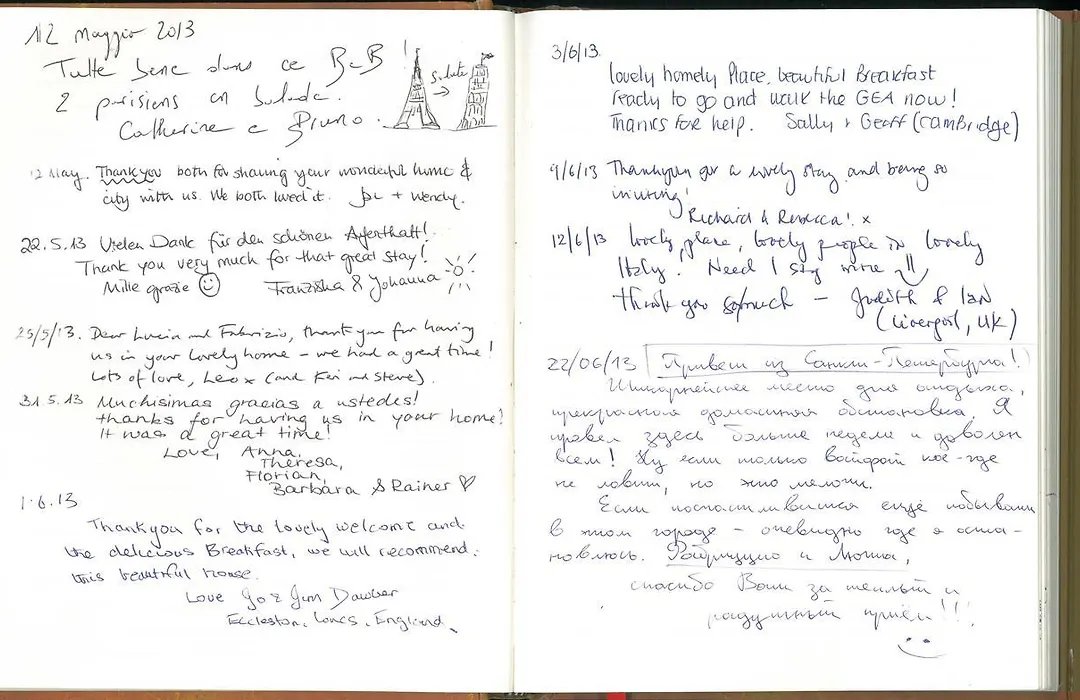 12 Maggio 2013
Tutte bene dans ce B&B!
2 parisiens en balade.
Catherine e Bruno.
Salute
12 May. Thank you both for sharing your wonderful home &
city with us. We both loved it. Joe + Wendy.
22.5.13 Vielen Dank für den schönen Aufenthalt!
Thank you very much for that great stay!
Mille grazie Franziska & Johanna
25/5/13. Dear Lucia and Fabrizio, thank you for having
us in your lovely home – we had a great time!
Lots of love, Leo x (and Keri and Steve).
31.5.13 Muchisimas gracias a ustedes!
thanks for having us in your home!
It was a great time!
Love, Anna,
Theresa,
Florian,
Barbara & Rainer
1.6.13
Thankyou for the lovely welcome and
the delicious Breakfast, we will recommend.
this beautiful house.
Love Jo & Jim Dawber
Eccleston, Lancs, England.
3/6/13.
lovely homely Place, beautiful Breakfast
ready to go and walk the GEA now!
Thanks for help. Sally + Geoff (Cambridge)
9/6/13 Thankyou for a lovely stay and being so
inviting!
Richard & Rebecca! x
12/6/13 lovely place, lovely people in lovely
Italy. Need I say more!!
thank you so much – Judith & Ian
(Liverpool, UK)
22/06/13 Привет из Санкт-Петербурга!
Шикарнейшее место для отдыха,
прекрасная домашняя обстановка. Я
провёл здесь больше недели и доволен
всем! Ну если только вайфай кое-где
не ловит, но это мелочи.
Если посчастливится ещё побывать
в этом городе – очевидно где я оста-
новлюсь. Фабрицио и Лючия,
спасибо Вам за тёплый и
радушный приём!!!